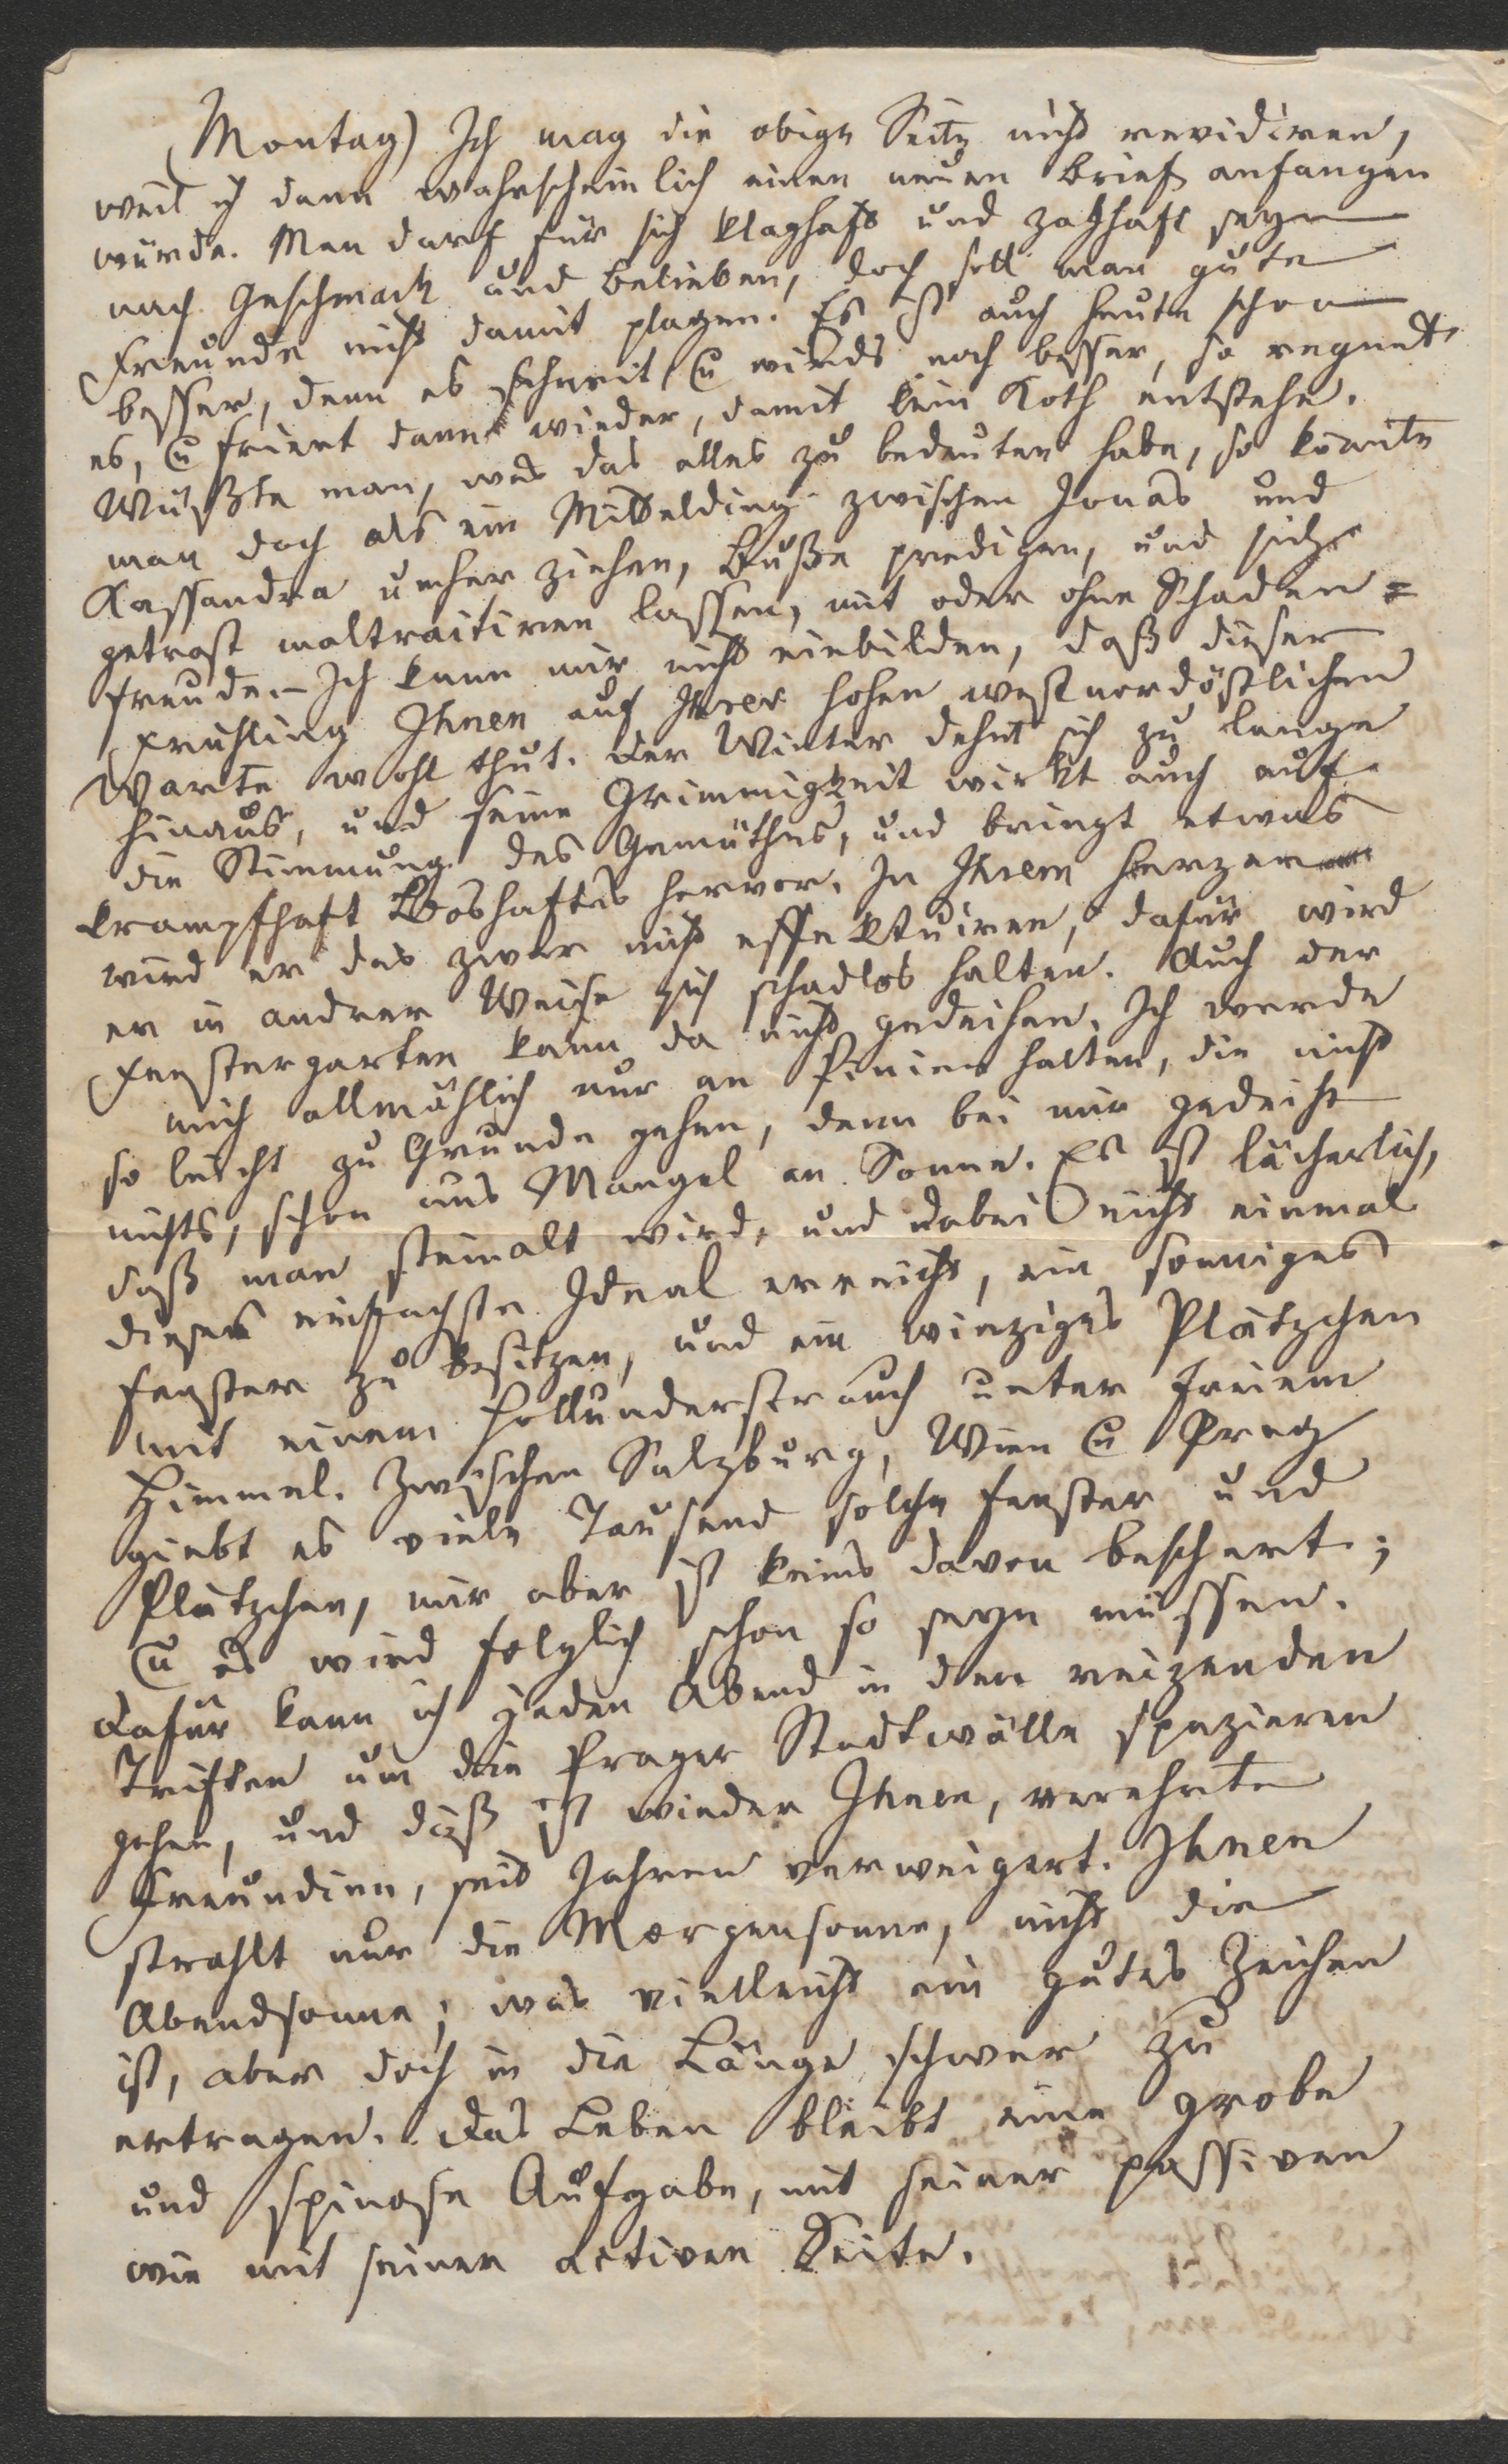 (Montag) Ich mag die obige Seite nicht revidiren,
weil ich dann wahrscheinlich einen neuen Brief anfangen
würde. Man darf für sich klaghaft und zaghaft seyn
nach Geschmack und Belieben, doch soll man gute
Freunde nicht damit plagen. Es ist auch heute schon
besser, denn es schneit, u wirds noch besser, so regnet
es, u friert dann wieder, damit kein Koth entstehe.
Wüßte man, was das alles zu bedeuten habe, so könnte
man doch als ein Mittelding zwischen Jonas und
Kassandra umher ziehen, Buße predigen, und sich
getrost maltraitiren lassen, mit oder ohne Schaden=
freude. – Ich kann mir nicht einbilden, daß dieser
Frühling Ihnen auf Ihrer hohen westnordöstlichen
Warte wohl thut. Der Winter dehnt sich zu lange
hinaus, und seine Grimmigkeit wirkt auch auf
die Stimmung des Gemüthes, und bringt etwas
krampfhaft Boshaftes hervor. In Ihrem Herzen
wird er das zwar nicht effektuiren, dafür wird
er in andrer Weise sich schadlos halten. Auch der
Fenstergarten kann da nicht gedeihen. Ich werde
mich allmählich nur an Pinien halten, die nicht
so leicht zu Grunde gehen, denn bei mir gedeiht
nichts, schon aus Mangel an Sonne. Es ist lächerlich,
daß man steinalt wird, und dabei nicht einmal
dieses einfachste Ideal erreicht, ein sonniges
Fenster zu besitzen, und ein winziges Plätzchen
mit einem Hollunderstrauch unter freiem
Himmel. Zwischen Salzburg, Wien u Prag
giebt es viele Tausend solche Fenster und
Plätzchen, mir aber ist keins davon beschert;
u es wird folglich schon so seyn müssen.
Dafür kann ich jeden Abend in den reizenden
Triften um die Prager Stadtwälle spazieren
gehen, und dieß ist wieder Ihnen, verehrte
Freundinn, seit Jahren verweigert. Ihnen
strahlt nur die Morgensonne, nicht die
Abendsonne; was vielleicht ein gutes Zeichen
ist, aber doch in die Länge schwer zu
ertragen. Das Leben bleibt eine grobe
und spinose Aufgabe, mit seiner passiven
wie mit seiner activen Seite.